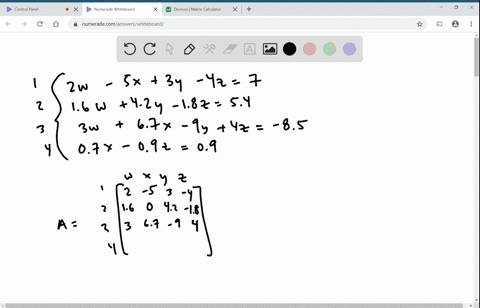 Control Panel
Numerade Whiteboard
Desmos | Matrix Calculator
numerade.com/answers/whiteboard/
1 2w - 5x + 3y - 4z = 7
2 1.6w + 4.2y - 1.8z = 5.4
3 3w + 6.7x - 9y + 4z = -8.5
4 0.7x - 0.9z = 0.9
w x y z
1 2 -5 3 -4
2 1.6 0 4.2 -1.8
A = 3 3 6.7 -9 4
4